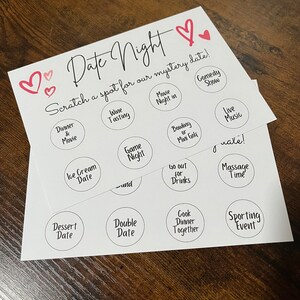 Date Night
Scratch a spot for our mystery date!
Dinner
& Movie
Wine
Tasting
Movie
Night in
Comedy
Show
Ice Cream
Date
Game
Night
Bowling
or Mini Golf
Live
Music
date!
Go out
for
Drinks
Massage
Time
Dessert
Date
Double
Date
Cook
Dinner
Together
Sporting
Event